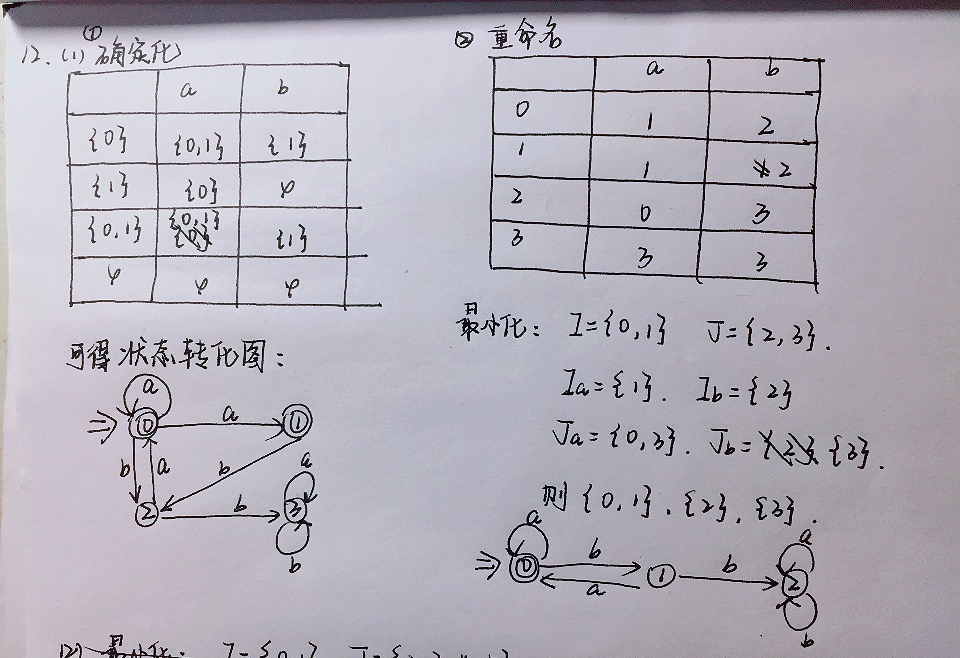 ①
12. (1) 确定化
a b
{0} {0,1} {1}
{1} {0} φ
{0,1} {0,1} {1}
φ φ φ
可得状态转化图:
a
⇒ 0 a 1
b a b a
2 b 3
b
② 重命名
a b
0 1 2
1 1 2
2 0 3
3 3 3
最小化: I={0,1} J={2,3}.
Ia={1}. Ib={2}
Ja={0,3}. Jb={3}.
则{0,1}, {2}, {3}.
a a
⇒ 0 b 1 b 2
a
b